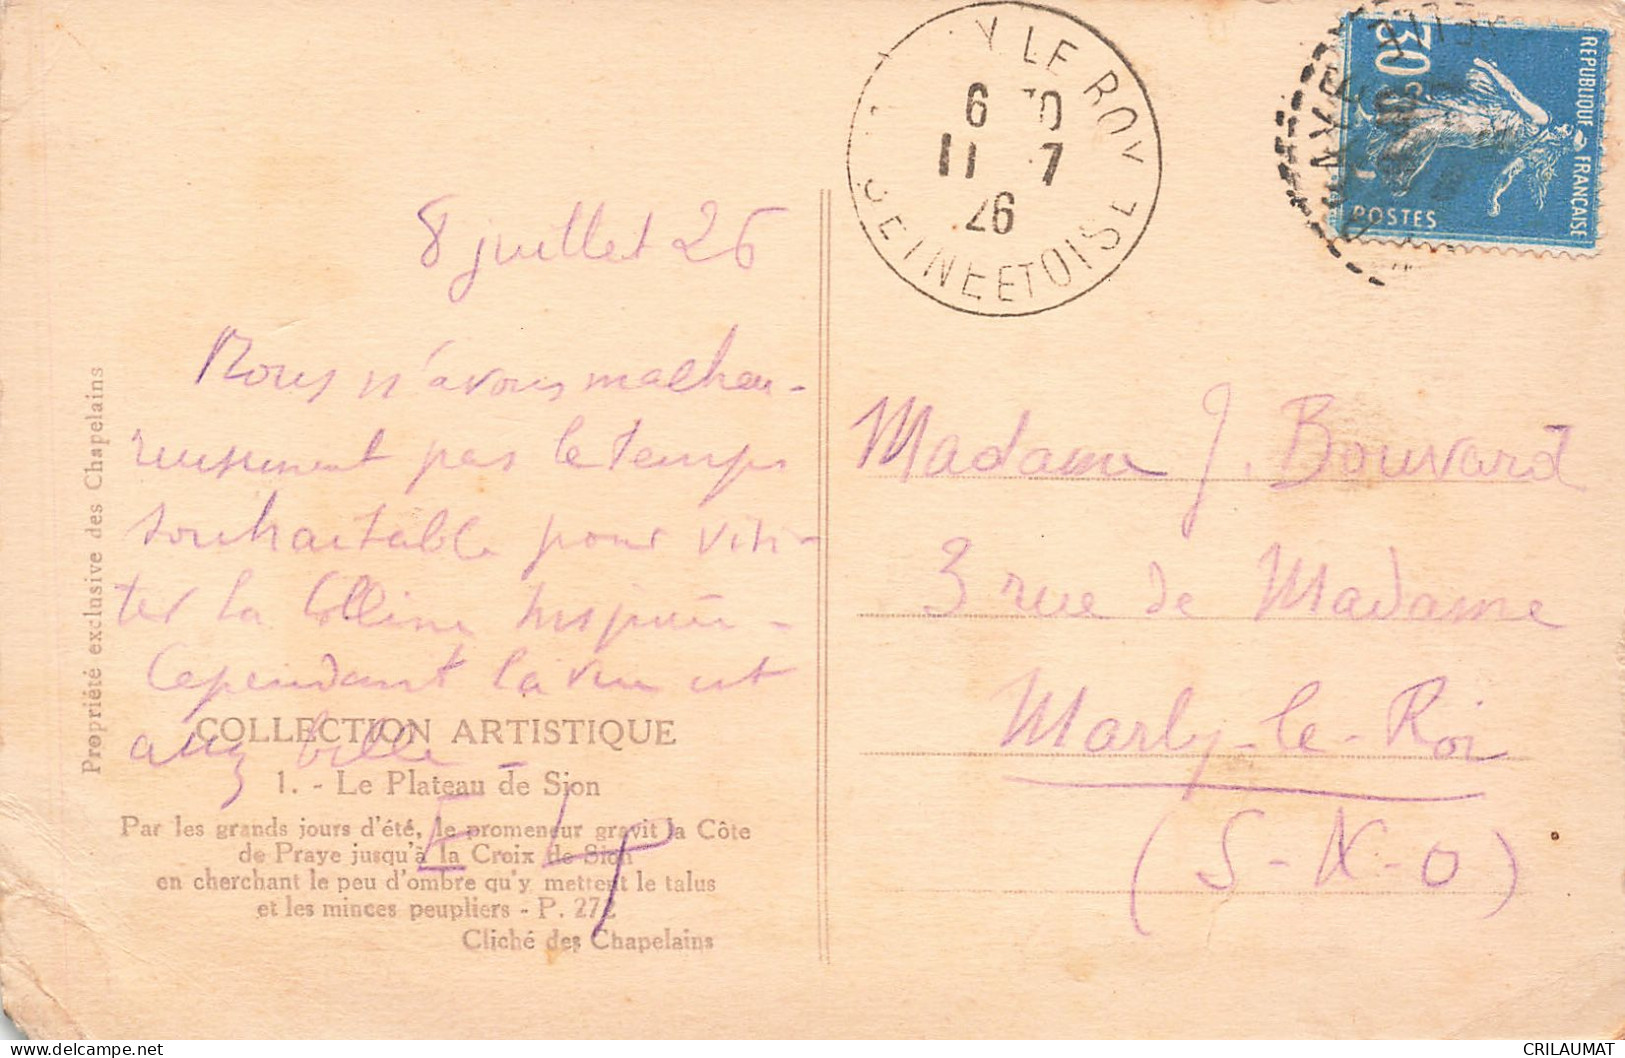 Y LE ROY
6 30
11 7
26
SEINE ET OISE
30c
REPUBLIQUE FRANÇAISE
POSTES
8 juillet 26
Nous n'avons malheu-
reusement pas le temps
souhaitable pour visi-
ter la Colline Inspirée -
Cependant la vue est
COLLECTION ARTISTIQUE
belle -
1. - Le Plateau de Sion
Par les grands jours d'été, le promeneur gravit la Côte
de Praye jusqu'à la Croix de Sion
en cherchant le peu d'ombre qu'y mettent le talus
et les minces peupliers - P. 272
Cliché des Chapelains
Propriété exclusive des Chapelains
Madame J. Bouvard
3 rue de Madame
Marly-le-Roi
(S-&-O)
CRILAUMAT